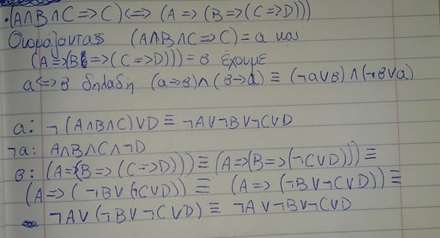 ·(A∧B∧C=>C)<=>(A=>(B=>(C=>D)))
Ονομάζοντας (A∧B∧C=>C)=a και
(A=>(B=>(C=>D)))=β έχουμε
a<=>β δηλαδή (a=>β)∧(β=>a)≡(¬a∨β)∧(¬β∨a)
a: ¬(A∧B∧C)∨D≡¬A∨¬B∨¬C∨D
¬a: A∧B∧C∧¬D
β: (A=>(B=>(C=>D)))≡(A=>(B=>(¬C∨D)))≡
(A=>(¬B∨(¬C∨D))≡ (A=>(¬B∨¬C∨D))≡
¬A∨(¬B∨¬C∨D)≡ ¬A∨¬B∨¬C∨D